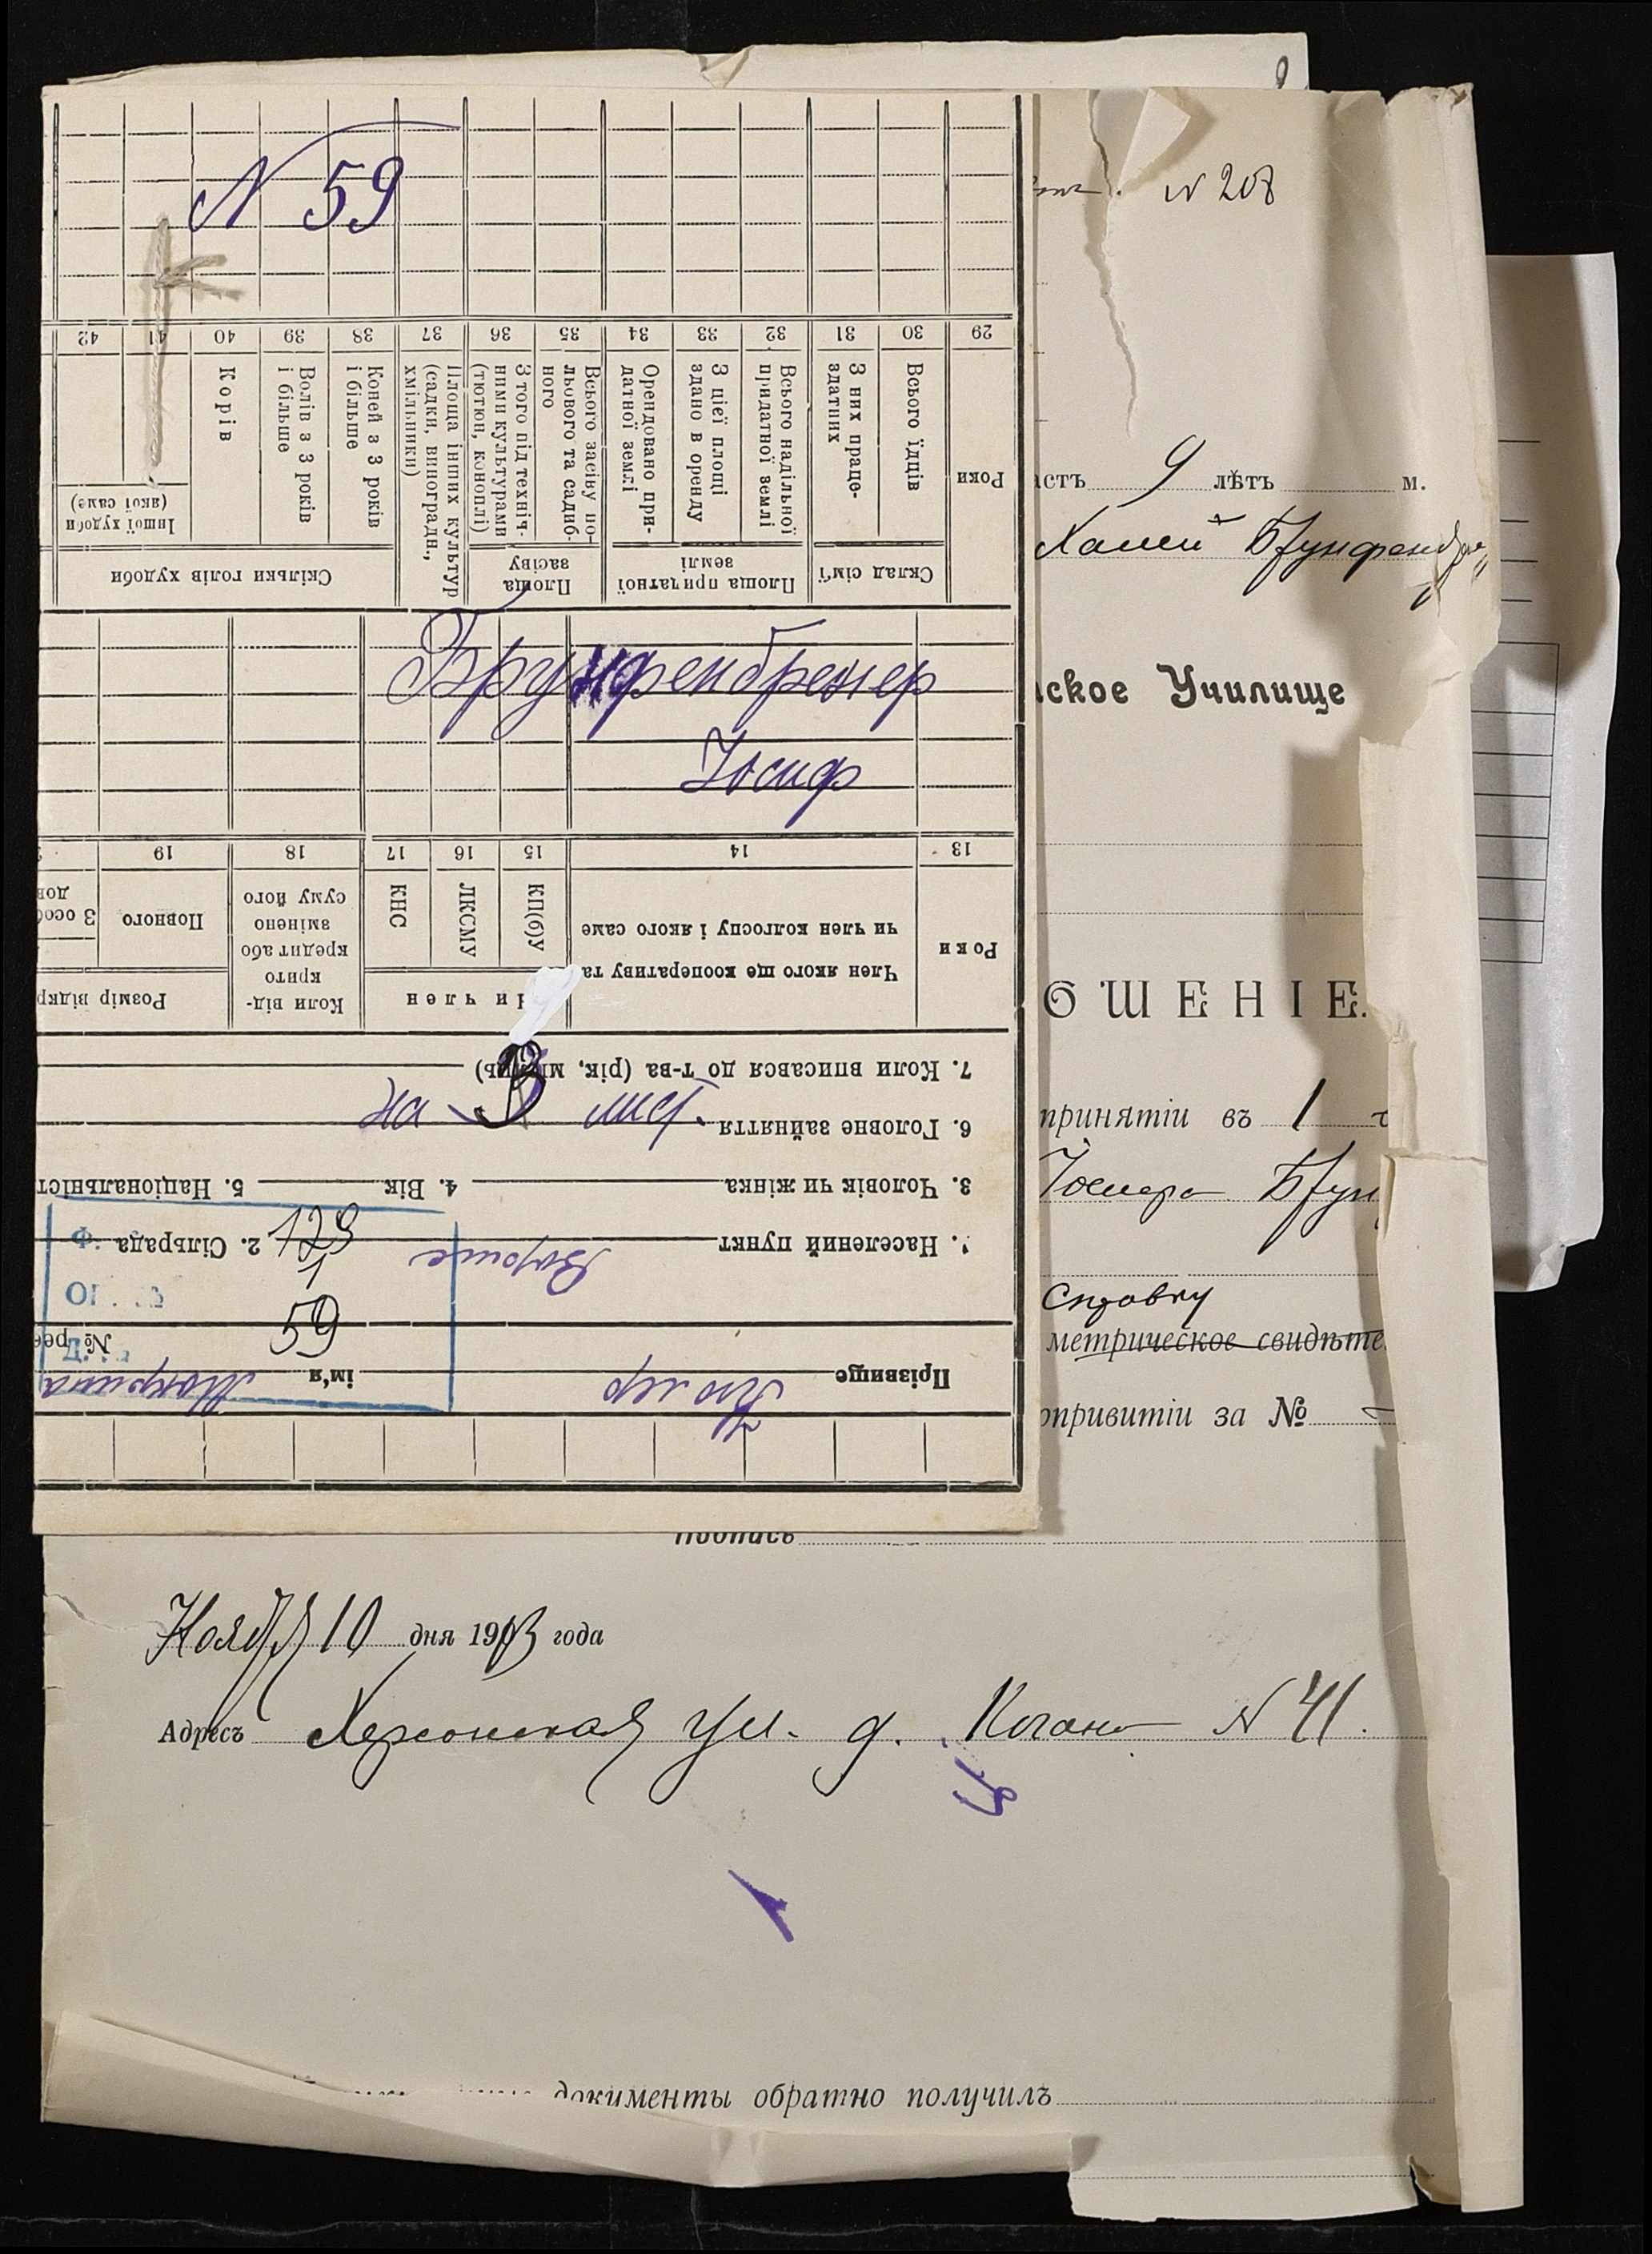 N 59
29 30 31 32 33 34 35 36 37 38 39 40 41 42
Роки
Всього їдців
З них праце-
здатних
Всього надільної
придатної землі
З цієї площі
здано в оренду
Орендовано при-
датної землі
Всього засіву по-
льового та садиб-
ного
З того під техніч-
ними культурами
(тютюн, коноплі)
Площа інших культур
(садки, виноградн.,
хмільники)
Коней з 3 років
і більше
Волів з 3 років
і більше
Корів
Іншої худоби
(якої саме)
Склад сім'ї
Площа придатної
землі
Площа
засіву
Скільки голів худоби
Брунфенбренер
Іосиф
13 14 15 16 17 18 19
Роки
Член якого ще кооперативу та
чи член колгоспу і якого саме
КП(б)У
ЛКСМУ
КНС
Чи член
Коли від-
крито
кредит або
змінено
суму його
Повного
З особ
дов
Розмір відкр
7. Коли вписався до т-ва (рік, місяць)
6. Головне зайняття
на 3 лист.
3. Чоловік чи жінка 4. Вік 5. Національніст
1. Населений пункт 2. Сільрада
129
1
59
Ф
О
Прізвище ім'я
№ рее
N 208
астъ 9 лѣтъ м.
ское Училище
ОШЕНІЕ.
принятіи въ 1
Справку
метрическое свидѣте
опривитіи за №
Подпись
Ноября 10 дня 1913 года
Адресъ Херсонская ул. д. Когана N 41.
документы обратно получилъ